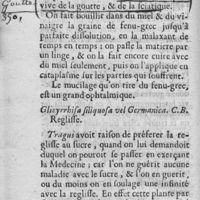 Goutte
350,
vive de la goutte, & de la sciatique.
On fait bouillir dans du miel & du vi-
naigre la graine de fenu-grec jusqu'à
parfaite dissolution, en la malaxant
de temps en temps : on passe la matiere par
un linge, & on la fait encore cuire avec
du miel seulement, puis on l'applique en
cataplasme sur les parties qui souffrent.
Le mucilage qu'on tire du fenu-grec,
est un grand ophtalmique.
Glicyrrhisa siliquosa vel Germanica. C. B.
Reglisse.
Tragus avoit raison de préferer la re-
glisse au sucre, quand on lui demandoit
duquel on pouroit se passer en exerçant
la Medecine ; car l'on ne guérit aucune
maladie avec le sucre, & l'on en guerit,
ou du moins on en soulage une infinité
avec la reglisse. En effet cette plante par